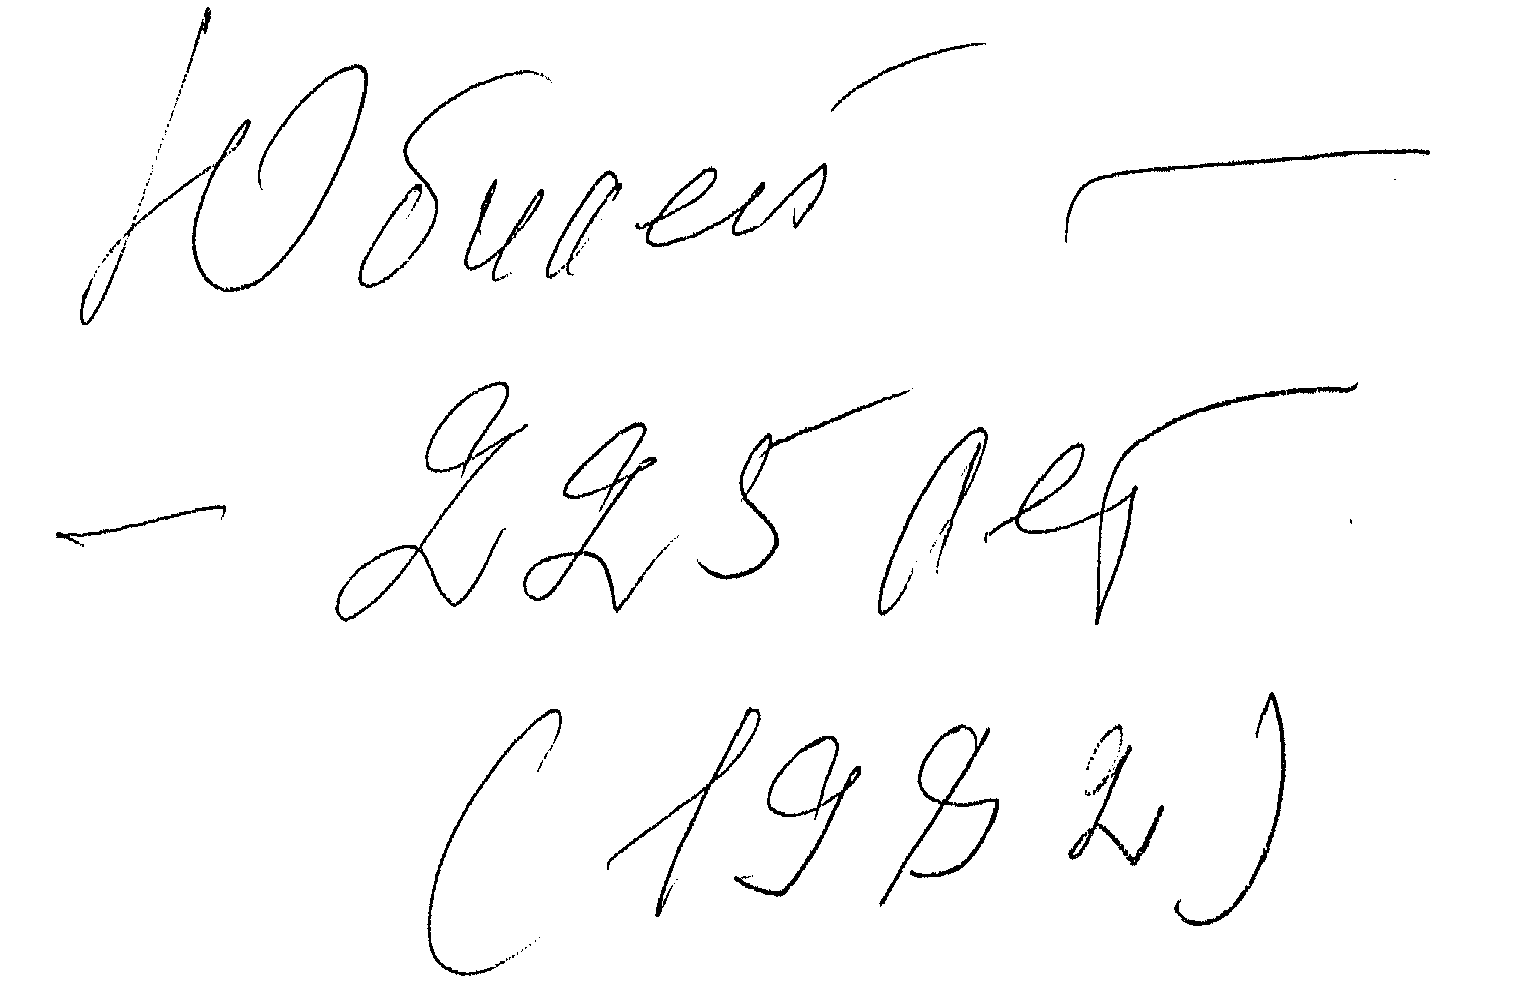 Юбилей —
— 225 лет
(1982)